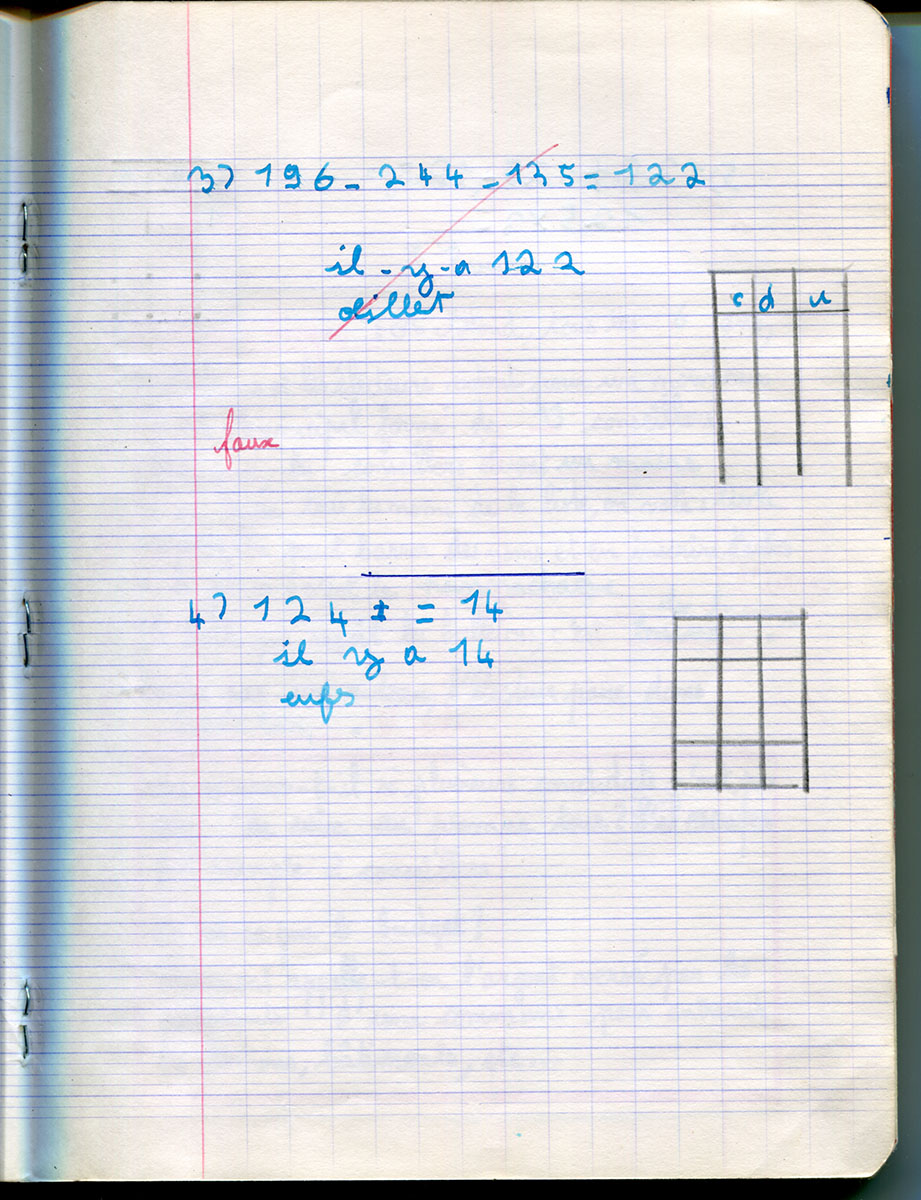 3) 196 - 244 - 135 = 122
il - y - a 122
œillet
c d u
faux
4) 124 ± = 14
il y a 14
eufs